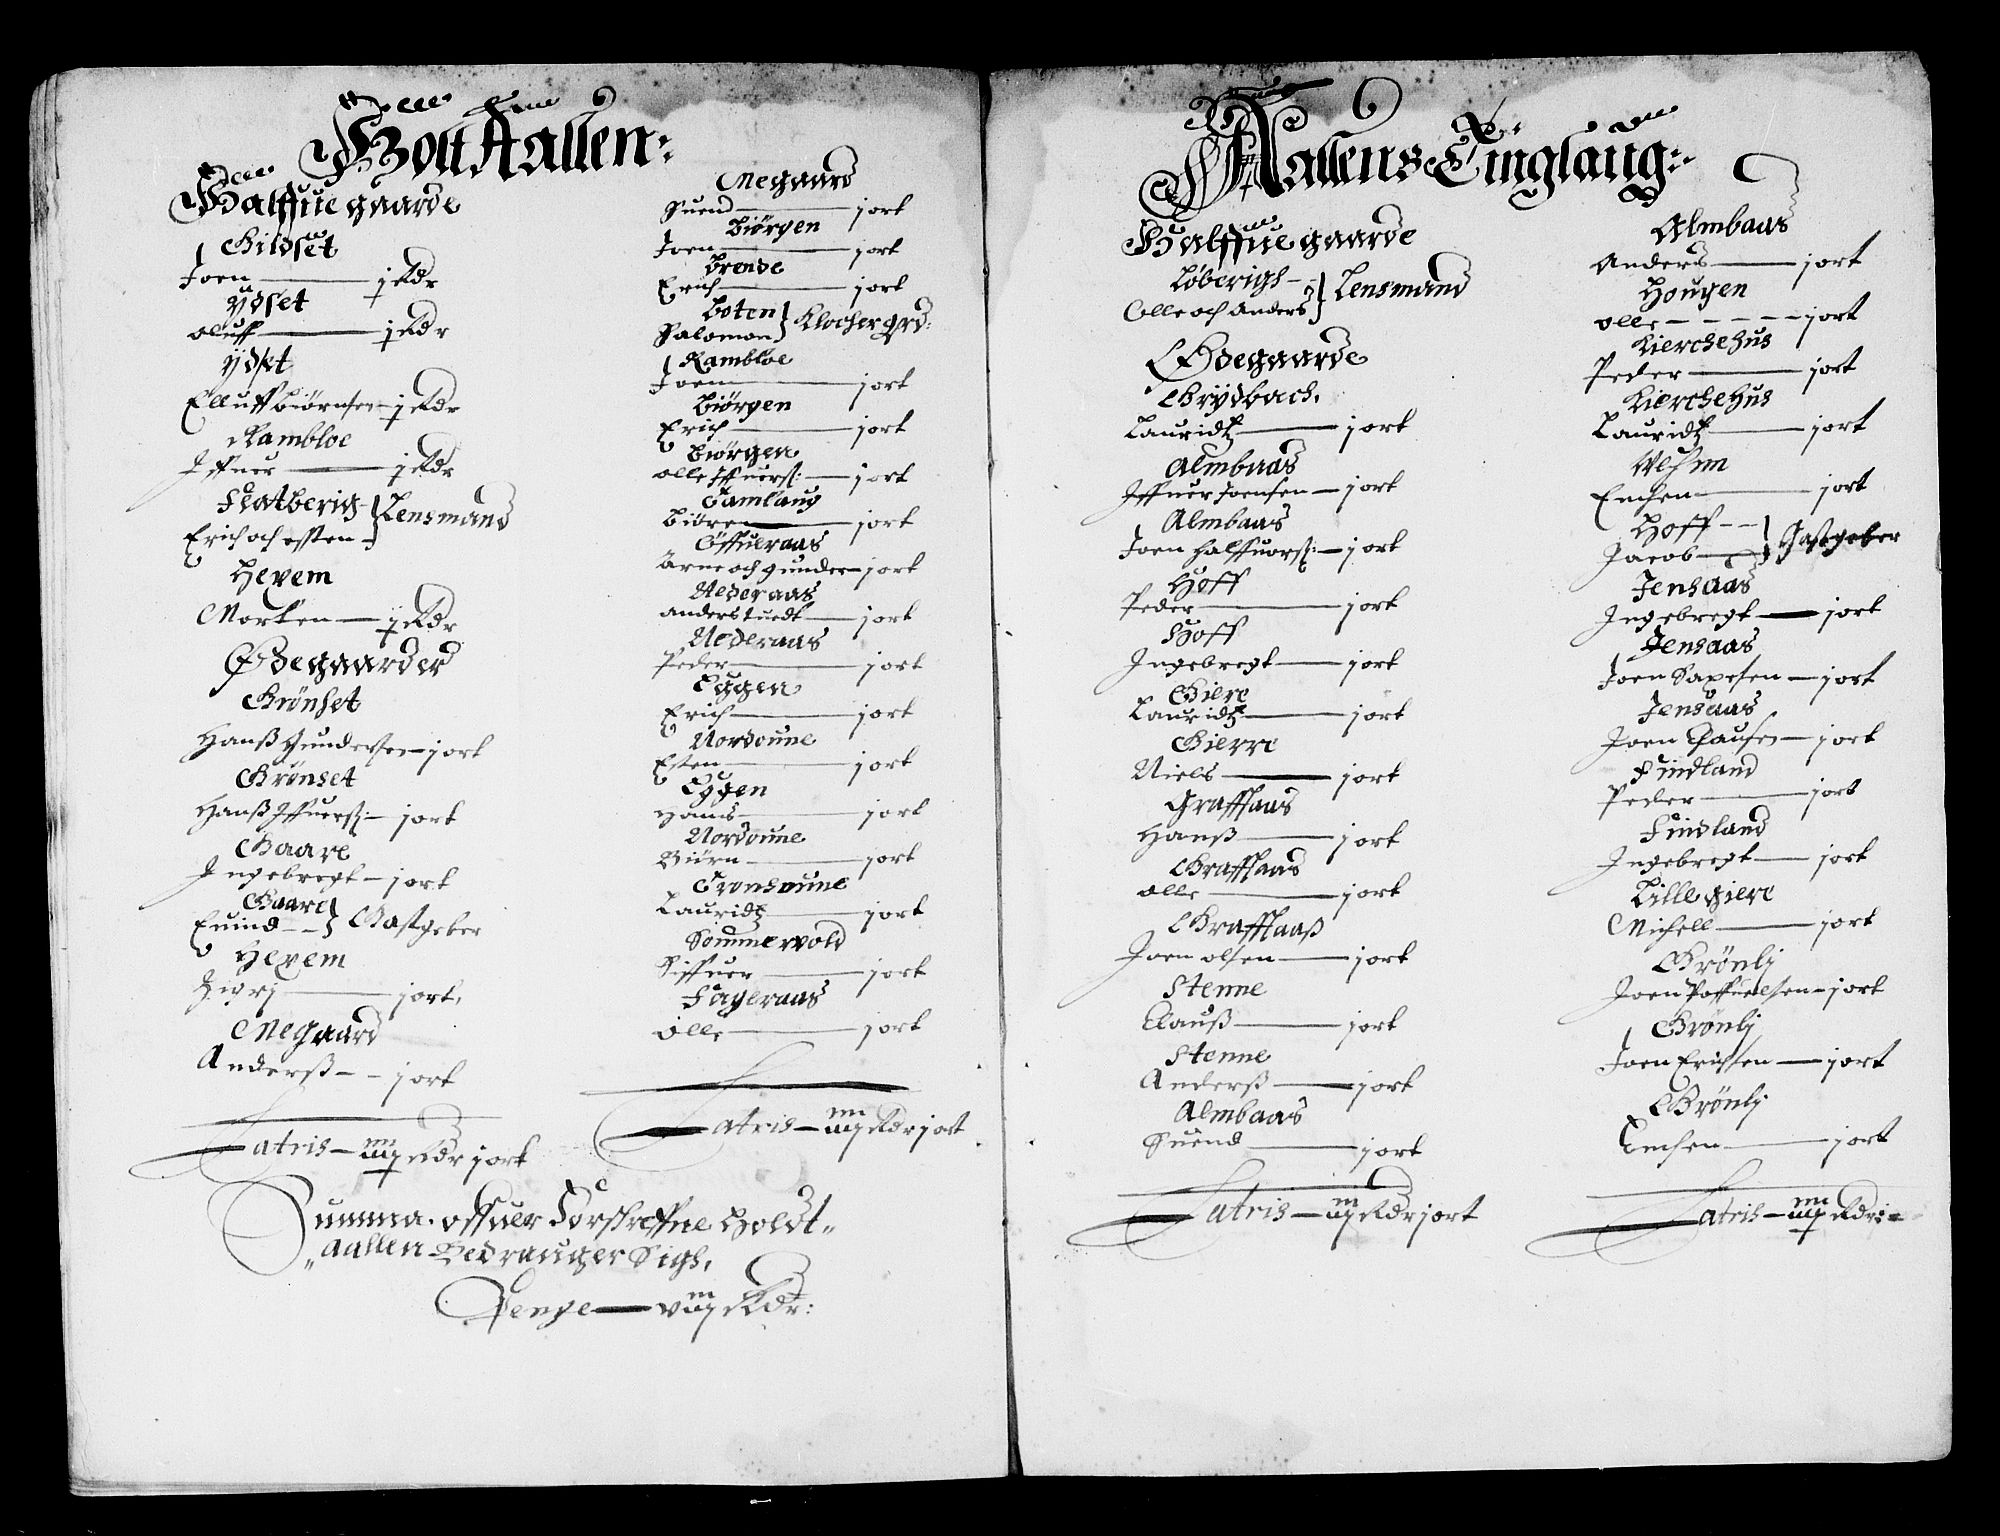 Holtt Aallen:
Halffue gaarde
Gildset
Joen — j Rdr
Ydset
Oluff — j Rdr
Ydset
Elluff Biørnsen — j Rdr
Rambloe
Iffuer — j Rdr
Flatberig } Lensmand
Erich och Esten
Hexem
Morten — j Rdr
Ødegaarder
Grønset
Hanß Gundersen — j ort
Grønset
Hanß Iffuerß: — j ort
Gaare
Ingebregt — j ort
Gaare } Gastgeber
Euind
Hexem
Siurj — j ort
Megaard
Anderß — j ort
Latris — iiiij Rdr j ort
Megaard
Suend — j ort
Biörgen
Joen — j ort
Brende
Erich — j ort
Boten } Klocher grd:
Salomon
Rambløe
Joen — j ort
Biörgen
Erich — j ort
Biörgen
Olle Iffuerß: — j ort
Tamlaug
Biören — j ort
Öffueraas
Arne och gunder — j ort
Nederaas
anders tuedt — j ort
Nederaas
Peder — j ort
Eggen
Erich — j ort
Nordoune
Esten — j ort
Eggen
Hans — j ort
Nordoune
Biörn — j ort
Tronsoune
Lauridtz — j ort
Sommervold
Siffuer — j ort
Fageraas
Olle — j ort
Latris — iiiij Rdr j ort
Summa offuer Forskreffne Holdt-
aallen Bedrauger Sigh,
Penge — viiij Rdr:
Aallens Tinglaug:
Halffue gaarde
Løberigh } Lensmand
Olle och Anders
Ødegaarde
Grydbach
Lauridtz — j ort
Almbaas
Iffuer Joensen — j ort
Almbaas
Joen Halffuorß: — j ort
Hoff
Peder — j ort
Hoff
Ingebregt — j ort
Giere
Lauridtz — j ort
Gierre
Niels — j ort
Graffsaas
Hanß — j ort
Graffsaas
Olle — j ort
Graffsaaß
Joen olsen — j ort
Stenne
Clauß — j ort
Stenne
Anderß — j ort
Almbaas
Suend — j ort
Latris — iiij Rdr j ort
Almbaas
Anders — j ort
Hougen
Olle — j ort
Kierchehus
Peder — j ort
Kierchehus
Lauridtz — j ort
Emhen — j ort
Hoff } Gastgeber
Jacob
Jensaas
Ingebregt — j ort
Jensaas
Joen Saxesen — j ort
Jensaas
Joen Paulsen — j ort
Findland
Peder — j ort
Findland
Ingebregt — j ort
Lille giere
Michell — j ort
Grönlj
Joen Poffuelsen — j ort
Grönlj
Joen Erichsen — j ort
Grönlj
Emhen — j ort
Latris — iiiij Rdr: